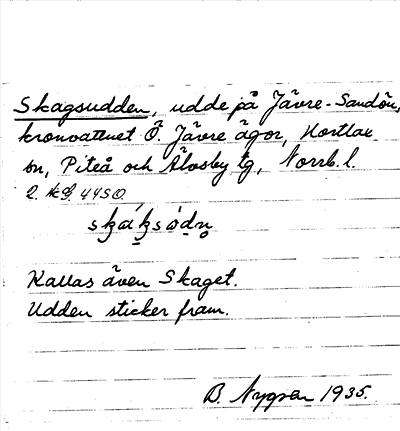 Skagsudden, udde på Jävre-Sandön,
kronvattnet Ö. Jävre ägor, Hortlax
sn, Piteå och Älvsby tg, Norrb. l.
2. 44SO.
Kallas även Skaget.
Udden sticker fram.
B. Nygren 1935.